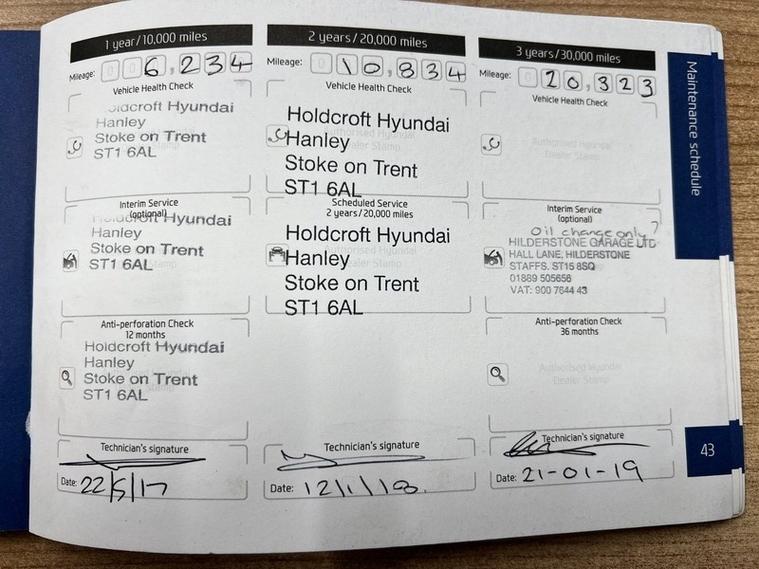 1 year/10,000 miles
Mileage: 0 0 6,2 3 4
Vehicle Health Check
Holdcroft Hyundai
Hanley
Stoke on Trent
ST1 6AL
Interim Service
(optional)
Holdcroft Hyundai
Hanley
Stoke on Trent
ST1 6AL
Anti-perforation Check
12 months
Holdcroft Hyundai
Hanley
Stoke on Trent
ST1 6AL
Technician's signature
Date: 22/5/17
2 years/20,000 miles
Mileage: 0 1 0,8 3 4
Vehicle Health Check
Holdcroft Hyundai
Hanley
Stoke on Trent
ST1 6AL
Scheduled Service
2 years/20,000 miles
Holdcroft Hyundai
Hanley
Stoke on Trent
ST1 6AL
Technician's signature
Date: 12/1/18.
3 years/30,000 miles
Mileage: 0 2 0,3 2 3
Vehicle Health Check
Authorised Hyundai
Dealer Stamp
Interim Service
(optional)
Oil change only?
HILDERSTONE GARAGE LTD
HALL LANE, HILDERSTONE
STAFFS. ST15 8SQ
01889 505656
VAT: 900 7644 43
Anti-perforation Check
36 months
Authorised Hyundai
Dealer Stamp
Technician's signature
Date: 21-01-19
Maintenance schedule
43